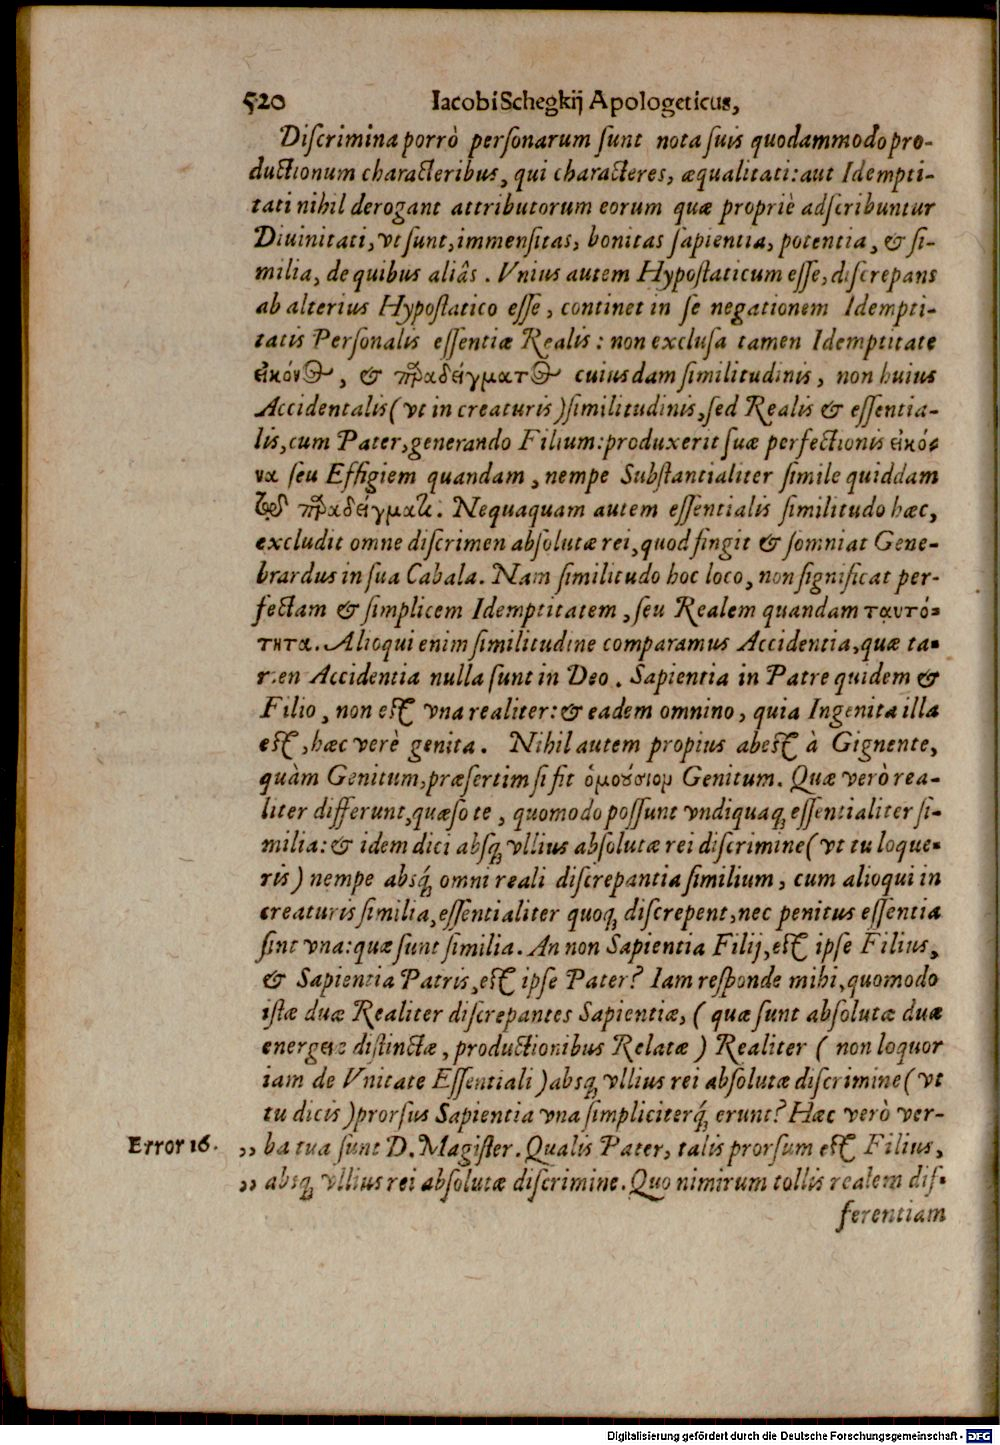 520 Iacobi Schegkij Apologeticus,
Discrimina porrò personarum sunt nota suis quodammodo pro-
ductionum characteribus, qui characteres, æqualitati: aut Idempti-
tati nihil derogant attributorum eorum quæ propriè adscribuntur
Diuinitati, vt sunt, immensitas, bonitas sapientia, potentia, & si-
milia, de quibus aliâs. Vnius autem Hypostaticum esse, discrepans
ab alterius Hypostatico esse, continet in se negationem Idempti-
tatis Personalis essentiæ Realis: non exclusa tamen Idemptitate
εἰκόνος, & παραδείγματος cuiusdam similitudinis, non huius
Accidentalis (vt in creaturis) similitudinis, sed Realis & essentia-
lis, cum Pater, generando Filium: produxerit suæ perfectionis εἰκό-
να seu Effigiem quandam, nempe Substantialiter simile quiddam
τῷ παραδείγματι. Nequaquam autem essentialis similitudo hæc,
excludit omne discrimen absolutæ rei, quod fingit & somniat Gene-
brardus in sua Cabala. Nam similitudo hoc loco, non significat per-
fectam & simplicem Idemptitatem, seu Realem quandam ταυτό-
τητα. Alioqui enim similitudine comparamus Accidentia, quæ ta-
men Accidentia nulla sunt in Deo. Sapientia in Patre quidem &
Filio, non est vna realiter: & eadem omnino, quia Ingenita illa
est, hæc verè genita. Nihil autem propius abest à Gignente,
quàm Genitum, præsertim si sit ὁμούσιον Genitum. Quæ verò rea-
liter differunt, quæso te, quomodo possunt vndiquaq; essentialiter si-
milia: & idem dici absq; vllius absolutæ rei discrimine (vt tu loque-
ris) nempe absq́; omni reali discrepantia similium, cum alioqui in
creaturis similia, essentialiter quoq; discrepent, nec penitus essentia
sint vna: quæ sunt similia. An non Sapientia Filij, est ipse Filius,
& Sapientia Patris, est ipse Pater? Iam responde mihi, quomodo
istæ duæ Realiter discrepantes Sapientiæ, (quæ sunt absolutæ duæ
energeiæ distinctæ, productionibus Relatæ) Realiter (non loquor
iam de Vnitate Essentiali) absq; vllius rei absolutæ discrimine (vt
tu dicis) prorsus Sapientia vna simpliciterq́; erunt? Hæc verò ver-
Error 16. ,, ba tua sunt D. Magister. Qualis Pater, talis prorsum est Filius,
,, absq; vllius rei absolutæ discrimine. Quo nimirum tollis realem dif-
ferentiam
Digitalisierung gefördert durch die Deutsche Forschungsgemeinschaft - DFG